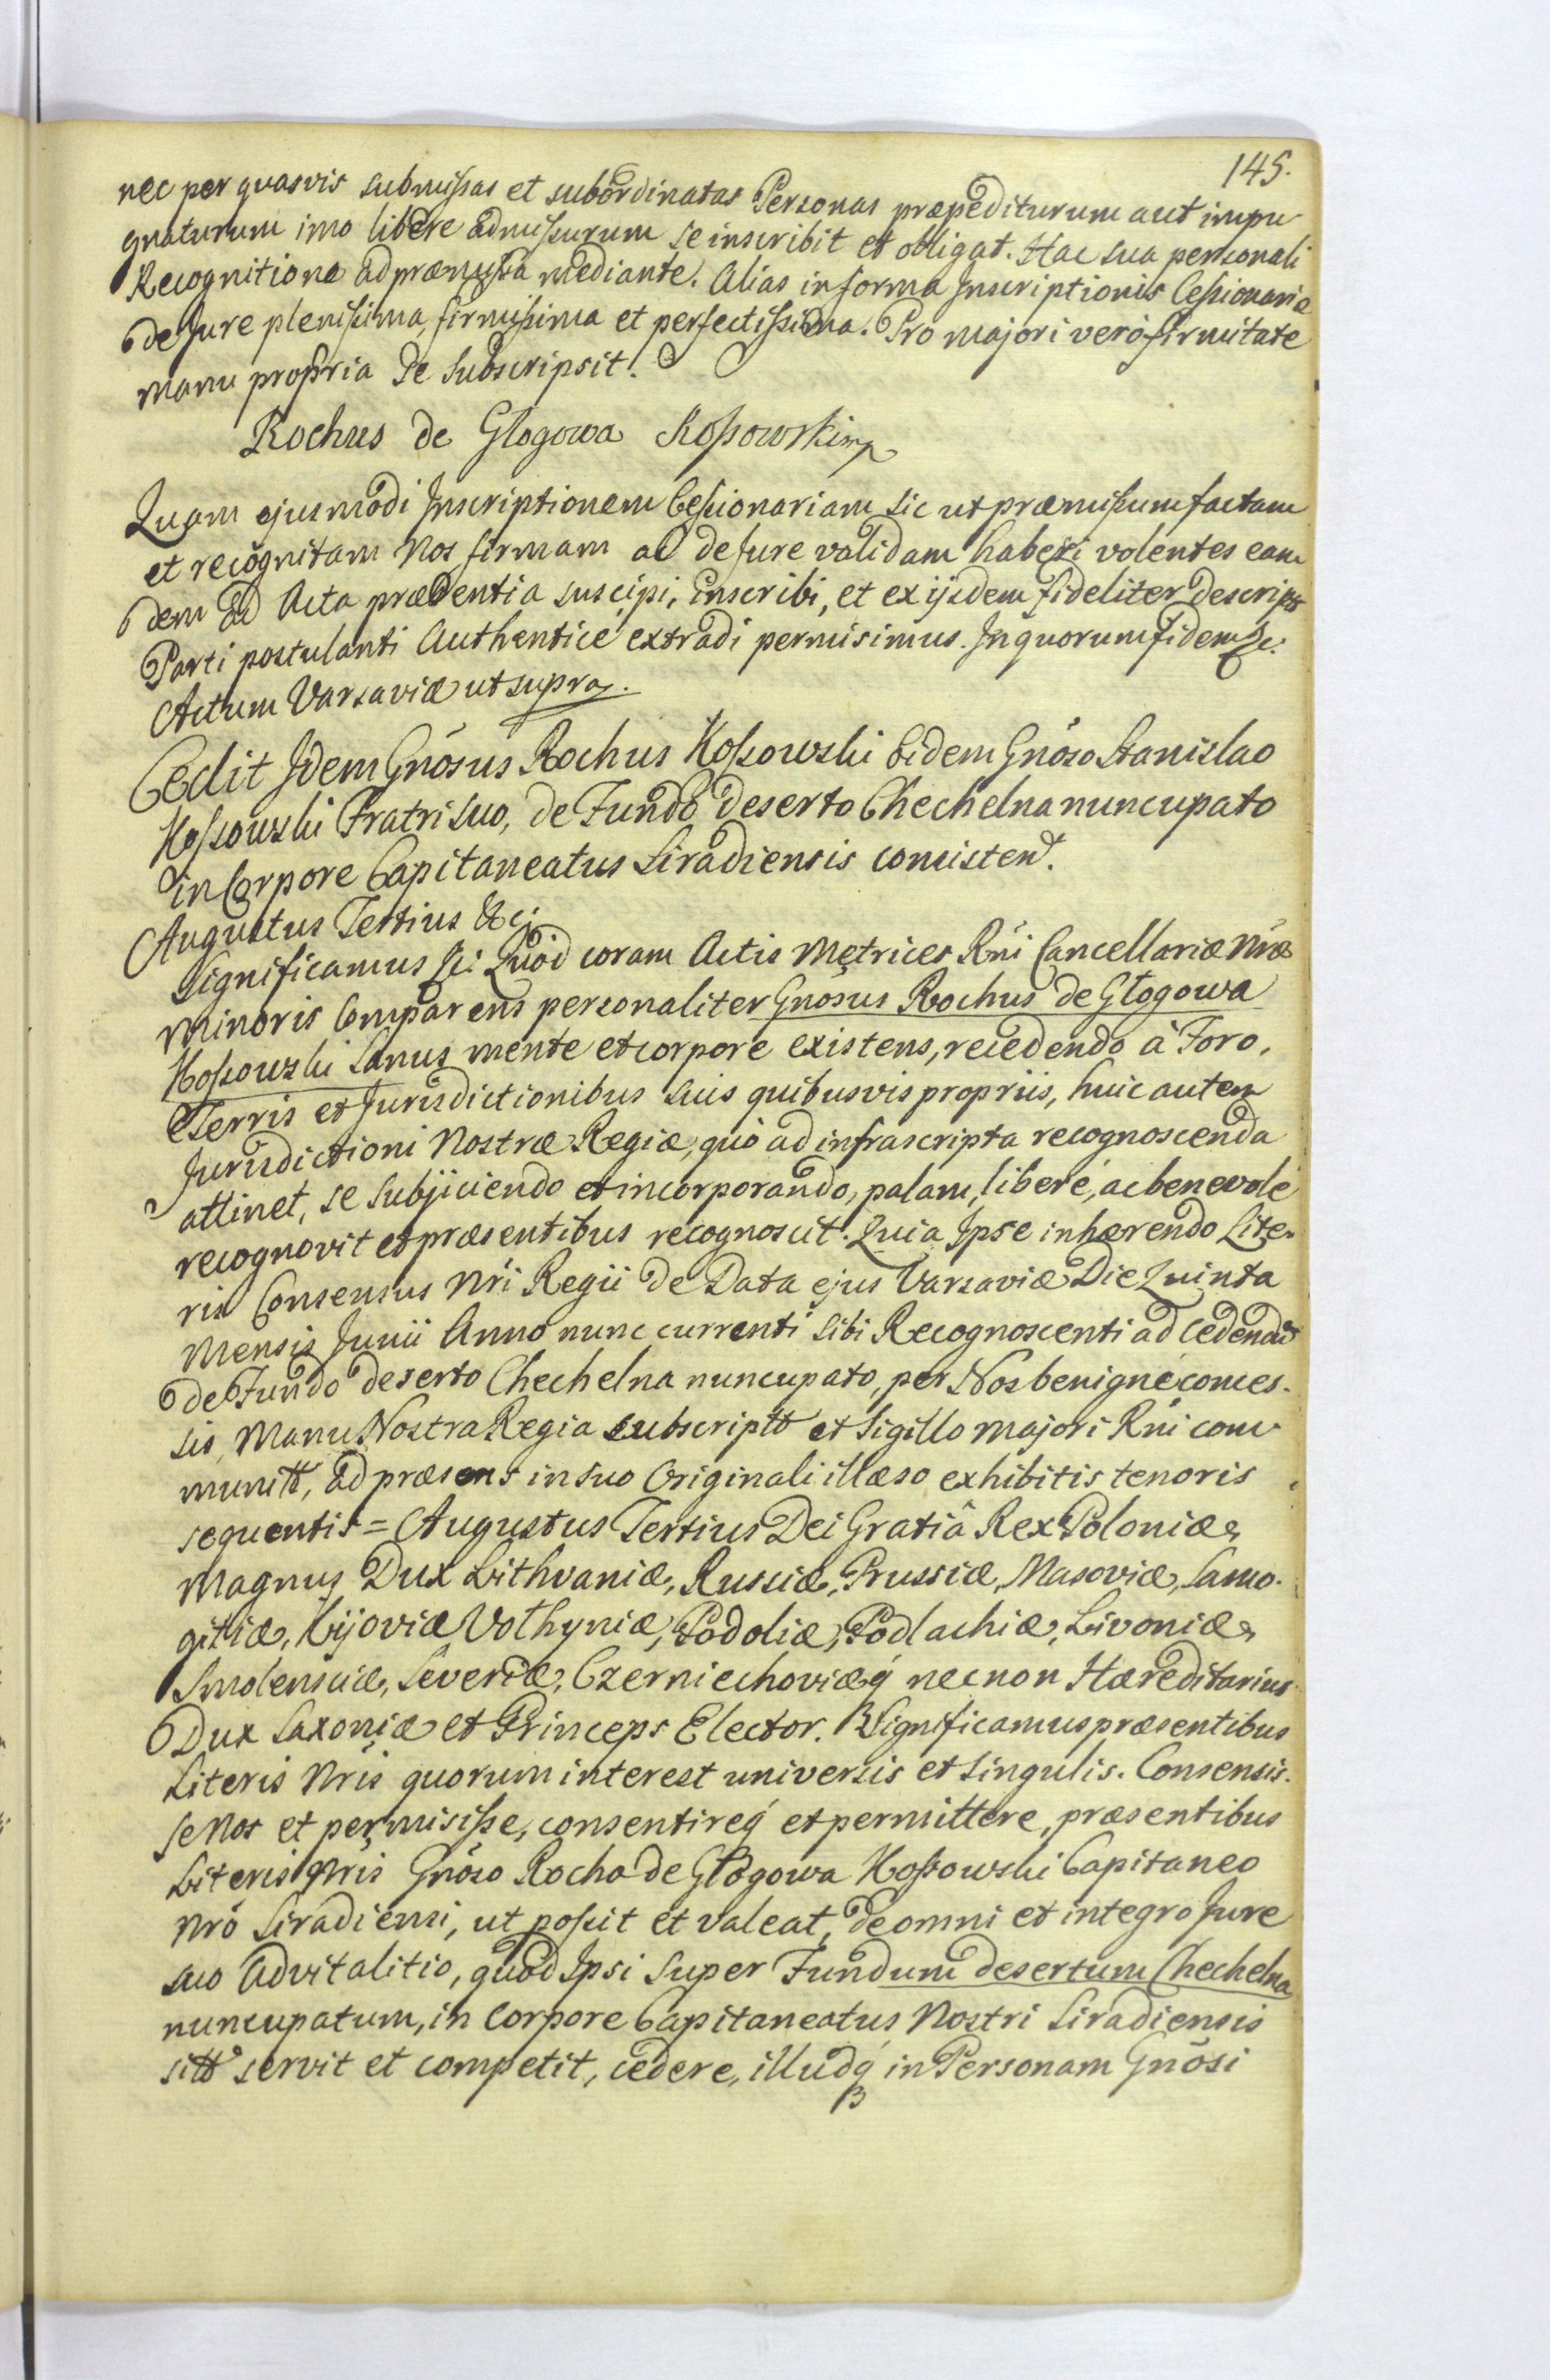 145.
nec per quasvis submissas et subordinatas Personas præpediturum aut impu
gnaturum imo libere admissurum se inscribit et obligat. Hac sua personali
Recognitione ad præmissa mediante. Alias in forma Inscriptionis Cessionariæ
de Jure plenissima, firmissima et perfectissima. Pro majori verò firmitate
manu propria se subscripsit.
Rochus de Glogowa Kossowski mp
Quam ejusmodi Inscriptionem Cessionariam sic ut præmissum factam
et recognitam Nos firmam ac de Jure validam haberi volentes eam
dem ad Acta præsentia suscipi, inscribi, et ex ijsdem fideliter descript
Parti postulanti Authentice extradi permisimus. In quorum fidem &c.
Actum Varsaviæ ut supra.
Cedit Idem Gnōsus Rochus Kossowski Eidem Gnōso Stanislao
Kossowski Fratri suo, de Fundo deserto Chechelna nuncupato
in Corpore Capitaneatus Siradiensis consisten.
Augustus Tertius &c:
Significamus &c: Quod coram Actis Metrices Rńi Cancellariæ Nræ
Minoris Comparens personaliter Gnōsus Rochus de Głogowa
Kossowski Sanus mente et corpore existens, recedendo à Foro,
Terris et Jurisdictionibus suis quibusvis propriis, huic autem
Jurisdictioni Nostræ Regiæ, quò ad infrascripta recognoscenda
attinet, se subjiciendo et incorporando, palam, liberé, ac benevolé
recognovit et præsentibus recognoscit. Quia Ipse inhærendo Lite
ris Consensus Nri Regii de Data ejus Varsaviæ Die Quinta
Mensis Junii Anno nunc currenti sibi Recognoscenti ad cedend
de Fundo deserto Chechelna nuncupato, per Nos benigné conces-
sis, Manu Nostra Regia subscriptt et Sigillo majori Rńi com
munitt, ad præsens in suo Originali illæso exhibitis tenoris
sequentis = Augustus Tertius Dei Gratiâ Rex Poloniæ,
Magnus Dux Lithvaniæ, Russiæ, Prussiæ, Masoviæ, Samo-
gitiæ, Kijoviæ Volhyniæ, Podoliæ, Podlachiæ, Livoniæ,
Smolensciæ, Severiæ, Czerniechoviæq́ necnon Hæreditarius
Dux Saxoniæ et Princeps Elector. Significamus præsentibus
Literis Nris quorum interest universis et singulis. Consensis-
se Nos et permisisse, consentireq́ et permittere, præsentibus
Literis Nris Gnōso Rocho de Głogowa Kossowski Capitaneo
Nrō Siradiensi, ut possit et valeat, de omni et integro Jure
suo Advitalitio, quod Ipsi super Fundum desertum Chechelna
nuncupatum, in Corpore Capitaneatus Nostri Siradiensis
sitt servit et competit, cedere, illudq́ in Personam Gnōsi